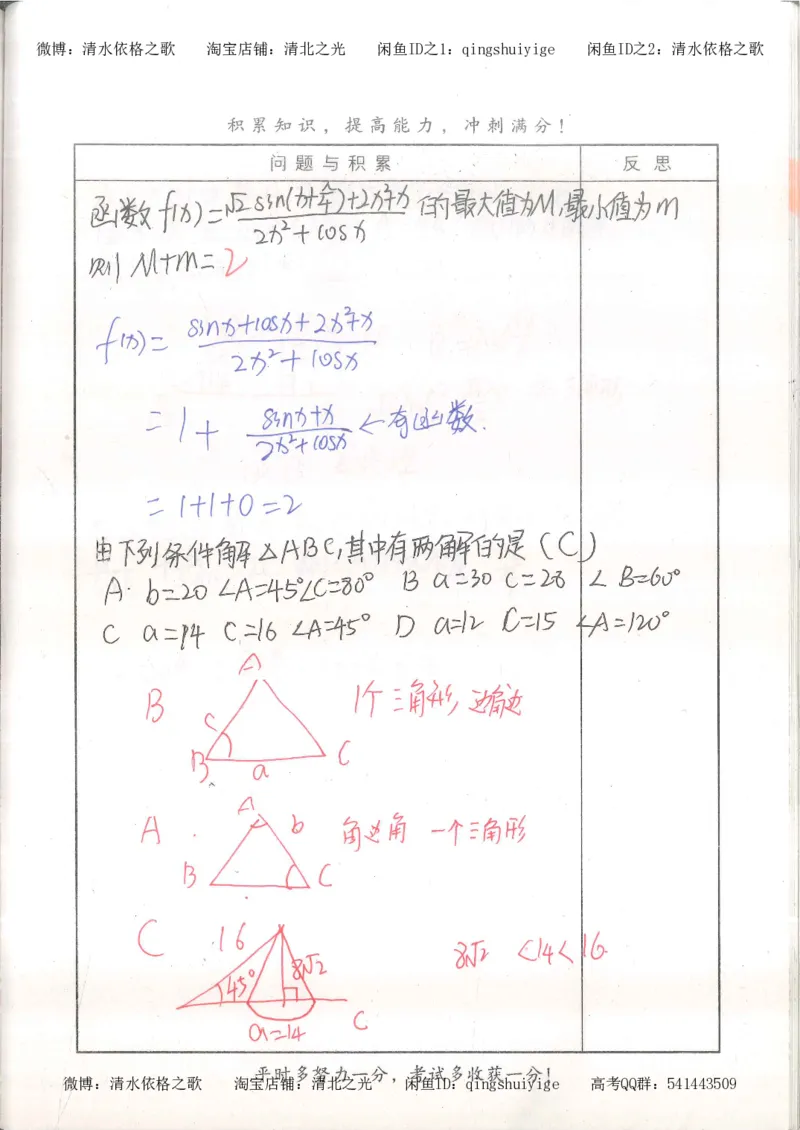 微博：清水依格之歌 淘宝店铺：清北之光 闲鱼ID之1：qingshuiyige 闲鱼ID之2：清水依格之歌
积累知识，提高能力，冲刺满分！
问题与积累 反思
函数f(x)=(√2sin(x+π/4)+2x²+x)/(2x²+cosx) 的最大值为M,最小值为m
则M+m=2
f(x)=(sinx+cosx+2x²+x)/(2x²+cosx)
=1+(sinx+x)/(2x²+cosx)←奇函数.
=1+1+0=2
由下列条件解△ABC,其中有两解的是(C)
A. b=20 ∠A=45°∠C=80° B a=30 c=28 ∠B=60°
C a=14 C=16 ∠A=45° D a=12 C=15 ∠A=120°
A
B 1个三角形,边角边
c
B a C
A
A. b 角边角 一个三角形
B C
C 16 8√2 8√2<14<16.
45°
a=14 C
平时多努力一分，考试多收获一分！
微博：清水依格之歌 淘宝店铺：清北之光 闲鱼ID之1：qingshuiyige 高考QQ群：541443509